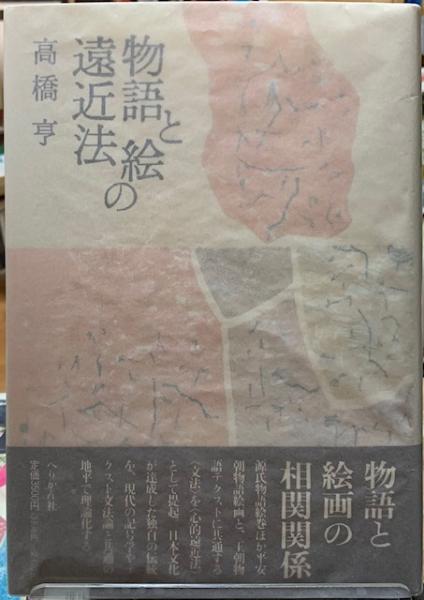 物語と絵の
遠近法
高橋亨
物語と
絵画の
相関関係
源氏物語絵巻ほか平安
朝物語絵画と、王朝物
語テクストに共通する
〈文法〉を〈心的遠近法〉
として提起。日本文化
が達成した独自の伝統
を、現代の記号学やテ
クスト文法論と共通の
地平で理論化する
ぺりかん社